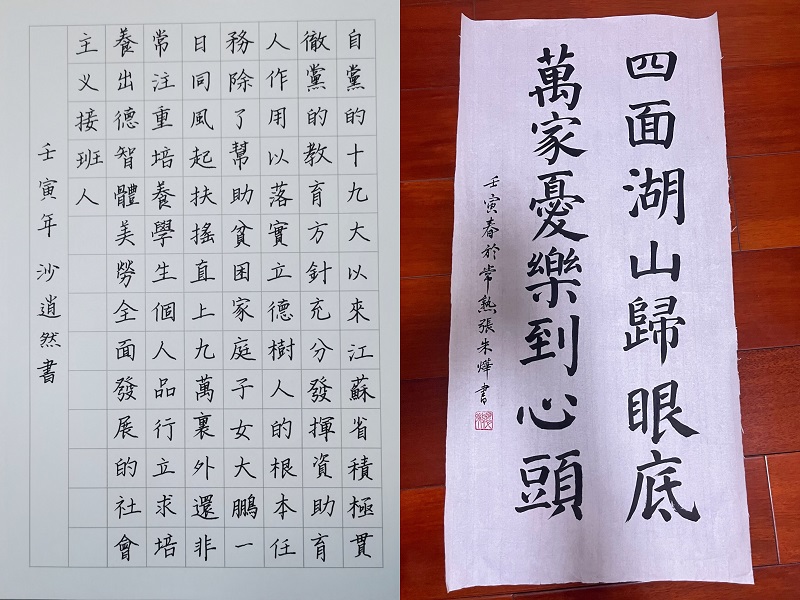 自黨的十九大以來江蘇省積極貫
徹黨的教育方針充分發揮資助育
人作用以落實立德樹人的根本任
務除了幫助貧困家庭子女大鵬一
日同風起扶搖直上九萬裏外還非
常注重培養學生個人品行立求培
養出德智體美勞全面發展的社會
主义接班人
壬寅年 沙逍然書
四面湖山歸眼底
萬家憂樂到心頭
壬寅春於常熟張朱燁書